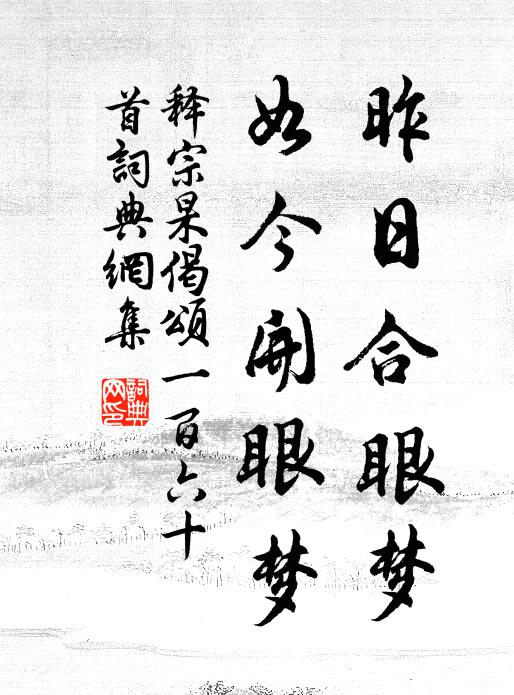 昨日合眼梦
如今开眼梦
释宗杲偈頌一百六十
首詞典網集
詞典
网印